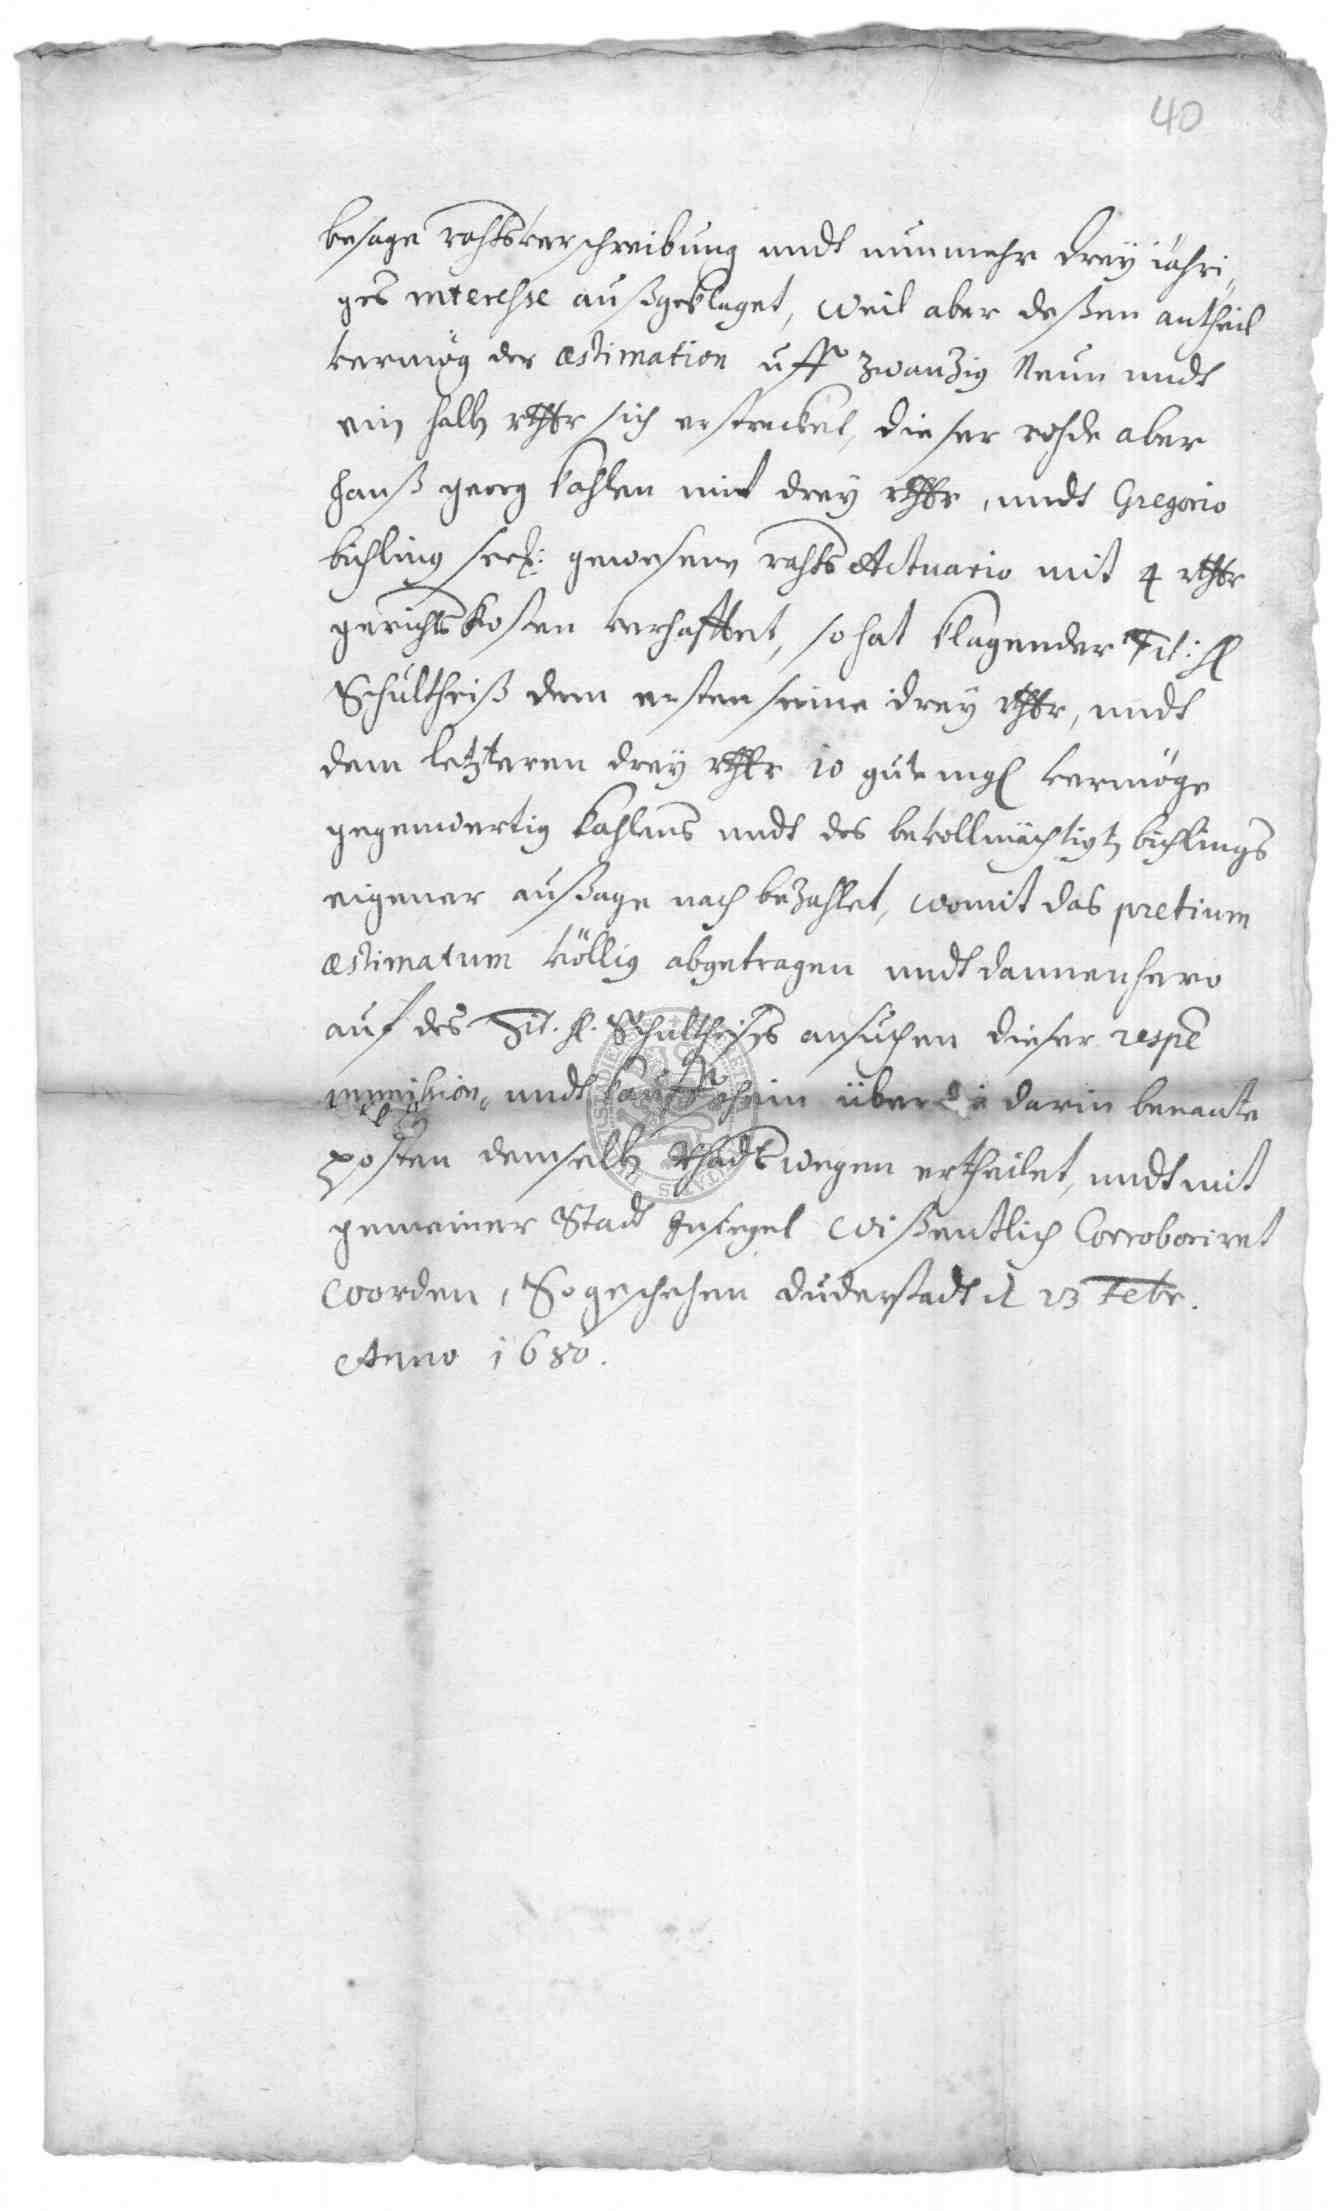 40
besage rahtsverschreibung undt nunmehr drey jähri„
ges interesse außgeklaget, weil aber deßen antheil
vermög der æstimation uff zwanzig Neun undt
ein halb rthlr sich erstrecket, dieser rohde aber
Hanß georg kahlen mit drey rthlr, undt Gregorio
bichling seel: gewesenen rahts Actuario mit 4 rthlr
gerichtskosten verhafftet, so hat klagender Tit: H
Schultheiß dem ersten seine drey rthlr, undt
dem letzteren drey rthlr 10 gute mgl vermöge
gegenwertig kahlens undt des bevollmächtigt bichlings
eigener außage nach bezahlet, womit das pretium
æstimatum völlig abgetragen undt dannenhero
auf des Tit. H. Schultheises ansuchen dieser respe
immission undt kauffschein über die darin benante
posten demselb rhadts wegen ertheilet, undt mit
gemeiner Stadt Insiegel wißentlich Corroboriret
worden, So geschehen duderstadt d 23 Febr.
Anno 1680.